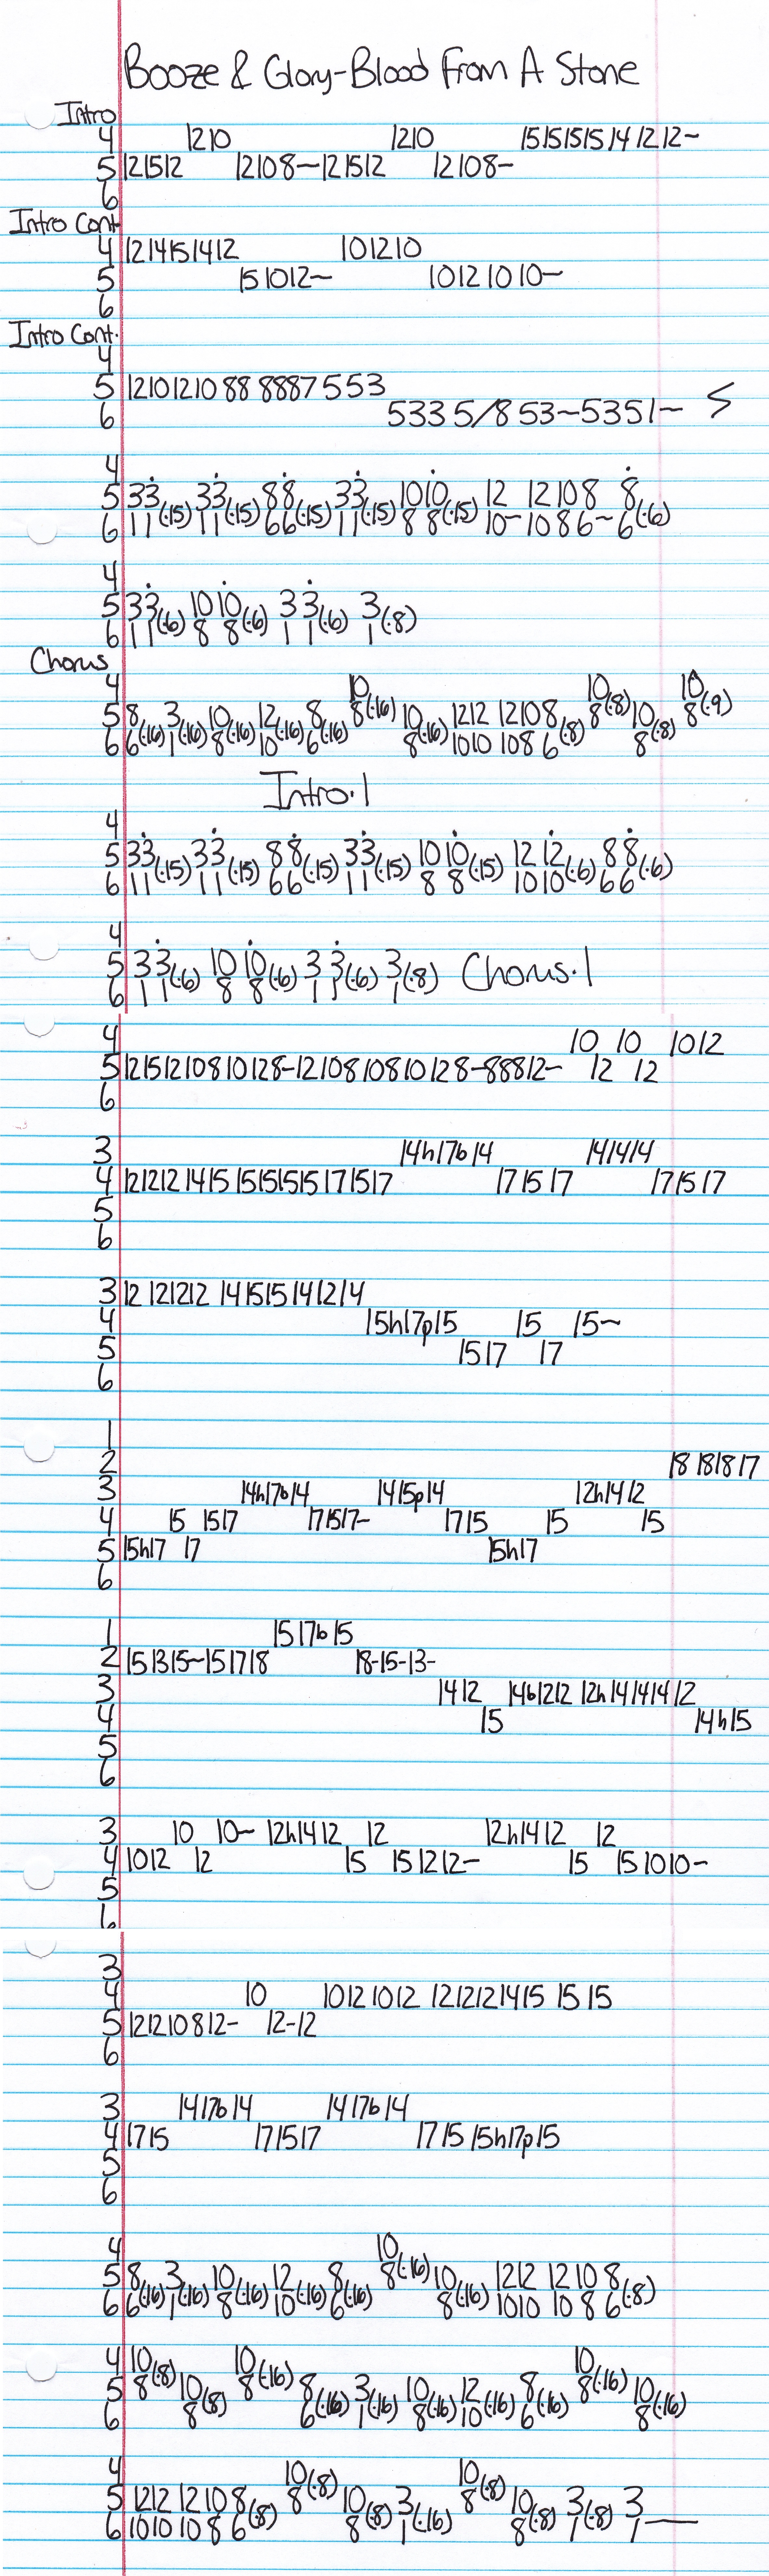 Booze & Glory-Blood From A Stone
Intro
4 1210 1210 15151515 14 12 12~
5 121512 12108~121512 12108~
6
Intro Cont
4 1214151412 101210
5 151012~ 10121010~
6
Intro Cont.
4
5 12101210 88 8887 553
6 5335/8 53~5351~
4
5 33 33 88 33 1010 12 12108 8
6 11(.15) 11(.15) 66(.15) 11(.15) 8 8(.15) 10~ 1086~ 6(.6)
4
5 33 1010 33 3
6 11(.6) 8 8(.6) 1 1(.6) 1(.8)
Chorus
4 10 10 10
5 8 3 10 12 8 8(.16) 10 1212 12108 8(.8) 10 8(.9)
6 6(.16) 1(.16) 8(.16) 10(.16) 6(.16) 8(.16) 1010 108 6(.8) 8(.8)
Intro.1
4
5 33 33 88 33 1010 1212 88
6 11(.15) 11(.15) 66(.15) 11(.15) 8 8(.15) 1010(.6) 66(.6)
4
5 33 1010 33 3 Chorus.1
6 11(.6) 8 8(.6) 1 1(.6) 1(.8)
4 10 10 1012
5 121512108 10128-12108108 10128-88812- 12 12
6
3 14h17b14 141414
4 1212121415 15151515171517 171517 171517
5
6
3 12 121212 141515141214
4 15h17p15 15 15~
5 1517 17
6
1
2 18 181817
3 14h17b14 1415p14 12h1412
4 15 1517 171517- 1715 15 15
5 15h17 17 15h17
6
1 1517b15
2 151315~151718 18-15-13-
3 1412 14b1212 12h14141412
4 15 14h15
5
6
3 10 10~ 12h1412 12 12h1412 12
4 1012 12 15 151212- 15 151010-
5
6
3
4 10 10121012 1212121415 1515
5 121210812- 12-12
6
3 1417b14 1417b14
4 1715 171517 1715 15h17p15
5
6
4 10
5 8 3 10 12 8 8(.16) 10 1212 12108
6 6(.16) 1(.16) 8(.16) 10(.16) 6(.16) 8(.16) 1010 1086(.8)
4 10 10 10
5 8(.8) 10 8(.16) 8 3 10 12 8 8(.16) 10
6 8(.8) 6(.16) 1(.16) 8(.16) 10(.16) 6(.16) 8(.16)
4 10 10
5 1212 12108 8(.8) 10 3 8(.8) 10 3 3
6 1010 1086(.8) 8(.8) 1(.16) 8(.8) 1(.8) 1